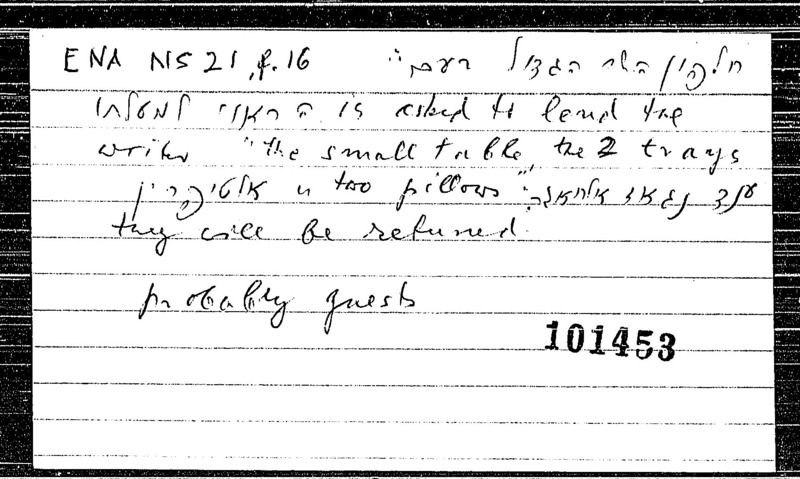 ENA NS 21, f. 16 חלפון השר הגדול
is asked to lend the
writer "the small table, the 2 trays
two pillows" ענד נגאז אלחאגה
they will be returned.
probably guests
101453